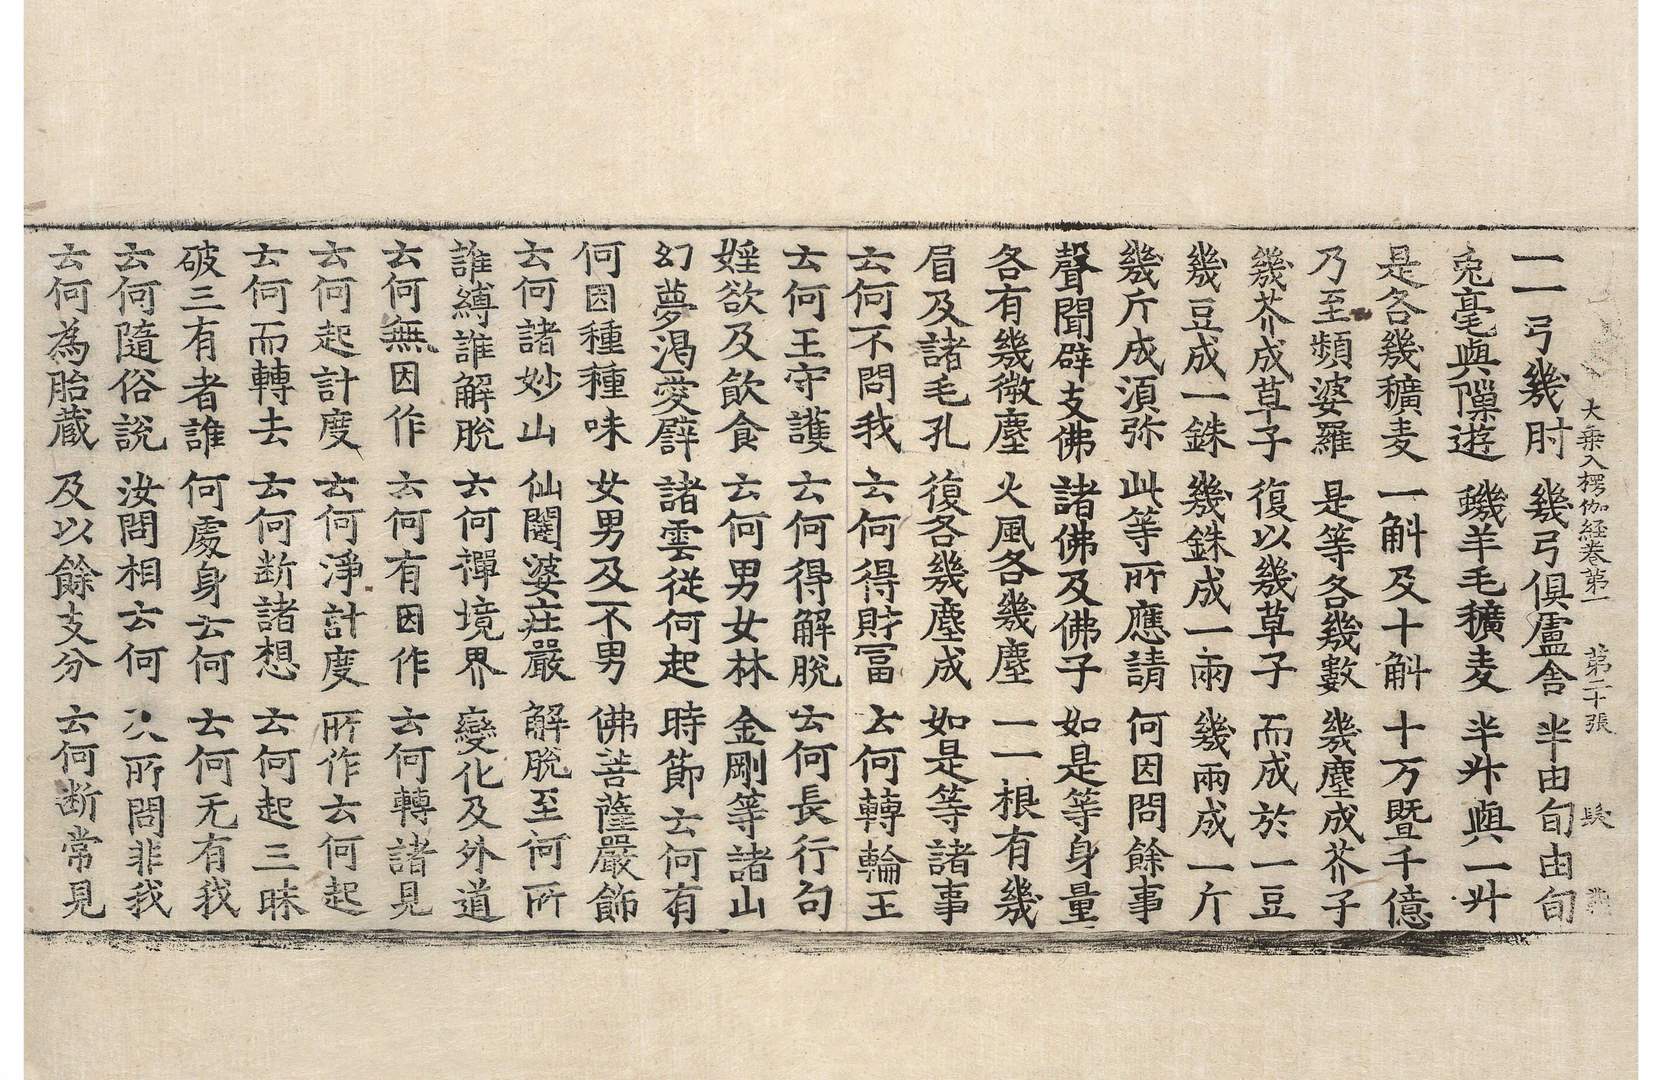 大乗入楞伽経巻第一　第二十張
一一弓幾肘　幾弓俱盧舎　半由旬由旬
兎毫與隙遊　蟣羊毛穬麦　半升與一升
是各幾穬麦　一斛及十斛　十万曁千億
乃至頻婆羅　是等各幾數　幾塵成芥子
幾芥成草子　復以幾草子　而成於一豆
幾豆成一銖　幾銖成一兩　幾兩成一斤
幾斤成須弥　此等所應請　何因問餘事
聲聞辟支佛　諸佛及佛子　如是等身量
各有幾微塵　火風各幾塵　一一根有幾
眉及諸毛孔　復各幾塵成　如是等諸事
云何不問我　云何得財冨　云何轉輪王
云何王守護　云何得解脫　云何長行句
婬欲及飲食　云何男女林　金剛等諸山
幻夢渴愛譬　諸雲從何起　時節云何有
何因種種味　女男及不男　佛菩薩嚴飾
云何諸妙山　仙闥婆莊嚴　解脫至何所
誰縛誰解脫　云何禪境界　變化及外道
云何無因作　云何有因作　云何轉諸見
云何起計度　云何淨計度　所作云何起
云何而轉去　云何断諸想　云何起三昧
破三有者誰　何處身云何　云何无有我
云何隨俗說　汝問相云何　所問非我
云何為胎藏　及以餘支分　云何断常見